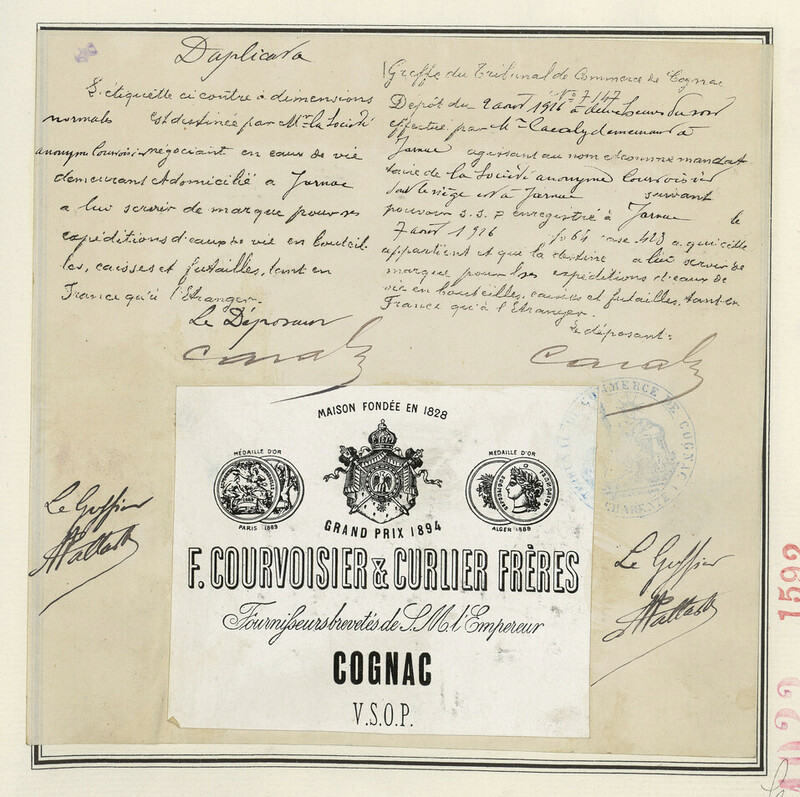 Duplicata
L'étiquette ci contre à dimensions
normales est destinée par Mr la Société
anonyme Courvoisier négociant en eaux de vie
demeurant et domicilié à Jarnac
à lui servir de marque pour ses
expéditions d'eaux de vie en bouteil
les, caisses et futailles, tant en
France qu'à l'Etranger.
Le Déposant
Greffe du Tribunal de Commerce de Cognac
No 7147
Dépôt du 2 aout 1916 à deux heures du soir
effectué par Mr demeurant à
Jarnac agissant au nom et comme mandat
taire de la Société anonyme Courvoisier
dont le siège est à Jarnac suivant
pouvoir s.s.p enregistré à Jarnac le
7 aout 1916 fo 64 case 423 à qui elle
appartient et qui la destine à lui servir de
marque pour ses expéditions d'eaux de
vie en bouteilles, caisses et futailles, tant en
France qu'à l'Etranger.
Le déposant:
MAISON FONDÉE EN 1828
MÉDAILLE D'OR
PARIS 1889
MÉDAILLE D'OR
ALGER 1888
GRAND PRIX 1894
F. COURVOISIER & CURLIER FRÈRES
Fournisseurs brevetés de S.M. l'Empereur
COGNAC
V.S.O.P.
Le Greffier
Le Greffier
COMMERCE DE COGNAC
CHARENTE
1592